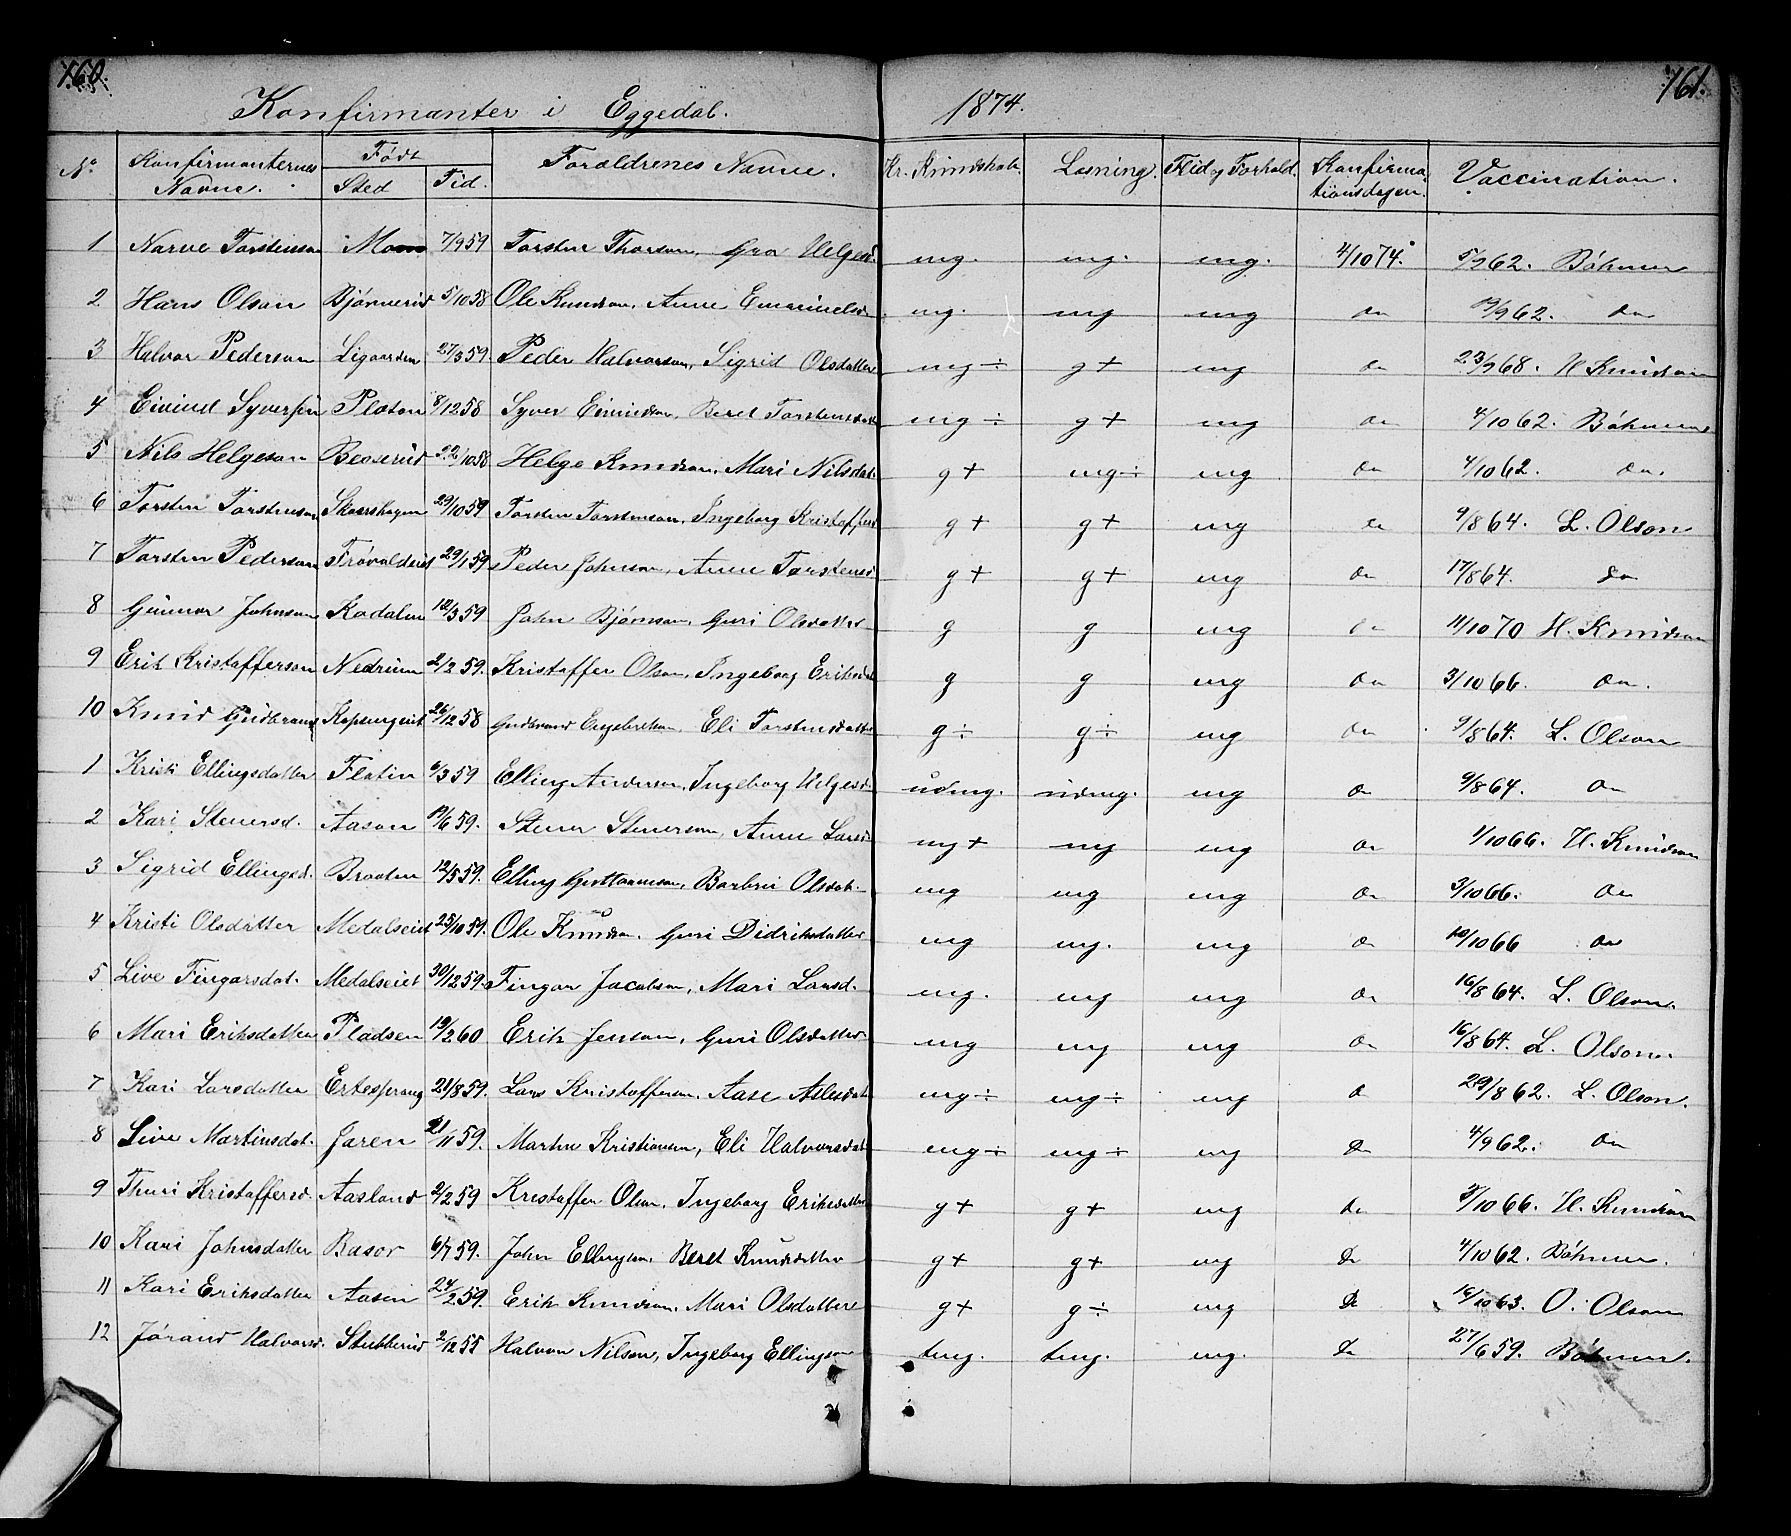 160.
161.
Konfirmanter i Eggedal. 1874.
No Konfirmanternes Navne. Født Sted Tid. Forældrenes Navne. Kr. Kundskab. Læsning. Flid og Forhold. Konfirmationsdagen. Vaccination.
1 Narve Torstenson Moen 7/9 59 Torsten Thorson, Gro Helgesd. mg. mg. mg. 4/10 74. 5/9 62. Böhmer
2 Hans Olson Bjørnerud 5/10 58 Ole Knudson, Anne Emanuelsd. mg. mg mg do 19/9 62. do
3 Halvor Pederson Ligaarden 27/3 59 Peder Halvorson, Sigrid Olsdatter mg÷ g+ mg do 23/9 68. H. Knudson
4 Eivind Syverson Plassen 8/12 58 Syver Eivindson, Beret Torstensdatter mg÷ g+ mg do 4/10 62. Böhmer
5 Nils Helgeson Beserud 22/10 58 Helge Knudson, Mari Nilsdat. g+ mg÷ mg do 4/10 62. do.
6 Torsten Torstenson Skarshagen 29/10 59 Torsten Torstenson, Ingeborg Kristoffersd g+ g+ mg do 9/8 64. L. Olson
7 Torsten Pederson Frøvoldeiet 29/1 59 Peder Johnson, Anne Torstensd g+ g+ mg do 17/8 64. do
8 Gunnar Johnson Kadalen 12/3 59 John Bjørnson, Guri Olsdatter g g mg do 11/10 70 H. Knudson
9 Erik Kristofferson Nedrum 2/2 59. Kristoffer Olson, Ingeborg Eriksdat g g mg do 3/10 66. do.
10 Knud Gudbrands 26/12 58 Gudbrand Engebretson, Eli Torstensdatter g÷ g÷ mg do 9/8 64. L. Olson
1 Kristi Ellingsdatter Flatin 6/3 59 Elling Anderson, Ingeborg Helgesd. udmg. udmg. mg do 9/8 64. do
2 Kari Stenersd. Aasen 19/6 59. Stener Stenerson, Anne Larsd mg+ mg mg do 1/10 66. H. Knudson
3 Sigrid Ellingsd. Braaten 12/5 59. Elling Guttormson, Barbro Olsdat. mg mg mg do 3/10 66. do
4 Kristi Olsdatter Medalseiet 25/10 59. Ole Knudson, Guri Didriksdatter mg mg. mg do 10/10 66 do
5 Live Fingarsdat. Medalseiet 30/12 59. Fingar Jacobson, Mari Larsd. mg. mg mg do 16/8 64. L. Olson.
6 Mari Eriksdatter Pladsen 19/2 60 Erik Jenson, Guri Olsdatter mg mg mg do 16/8 64. L. Olson.
7 Kari Larsdatter Ertesprang 21/8 59. Lars Kristofferson, Aase Aslesdat mg÷ mg÷ mg do 29/8 62. L. Olson.
8 Live Martinsdat. Jaren 21/11 59. Martin Kristianson, Eli Halvorsdat mg÷ mg÷ mg do 4/9 62. do
9 Thuri Kristoffersd. Aasland 2/2 59 Kristoffer Olson, Ingeborg Eriksdatter g+ g+ mg do 3/10 66. H. Knudson
10 Kari Johnsdatter Basor 6/7 59. John Ellingson, Beret Knudsdatter g+ g+ mg do 4/10 62. Böhmer.
11 Kari Eriksdatter Aasen 24/2 59. Erik Knudson, Mari Olsdatter g+ g÷ mg do 16/10 63. O. Olson
12 Jørand Halvorsd. Stubberud 2/12 55 Halvor Nilson, Ingeborg Ellings tmg. tmg. mg. do 27/6 59. Böhmer.